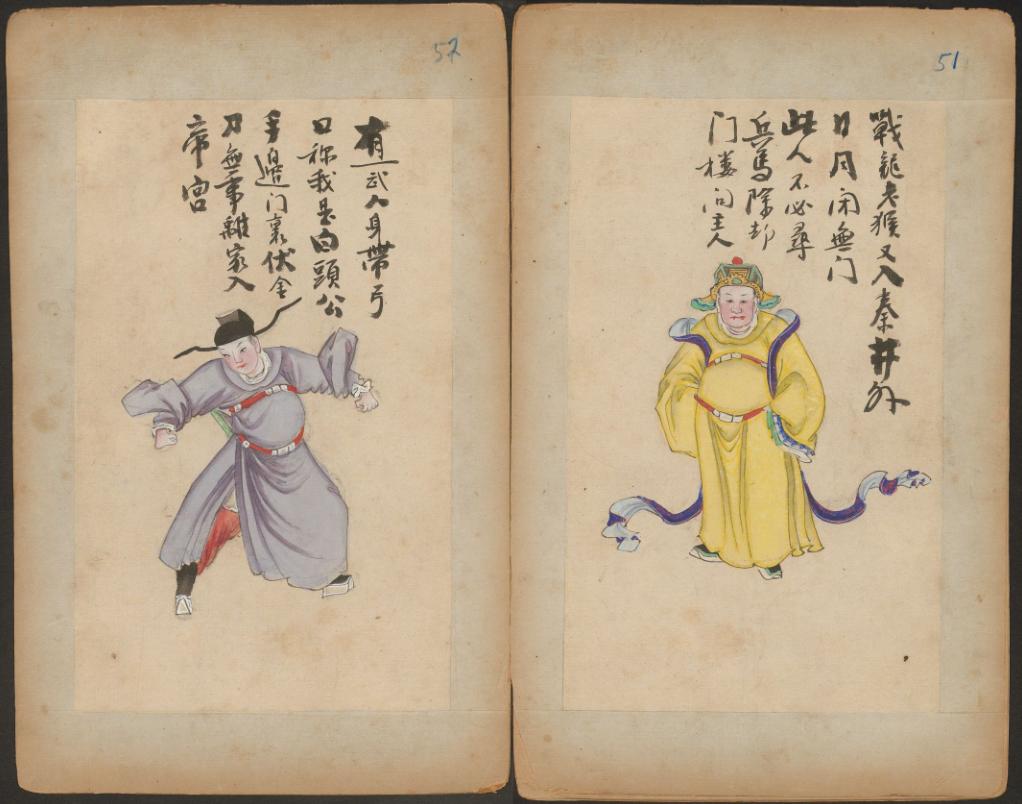 51
戰龍老猴又入秦井外
日月闲無门
此人不必尋
兵馬除却
门楼问主人
52
有一武人身帶弓
口称我是白頭公
手邊门裏伏金
刀無事離家入
帝宫